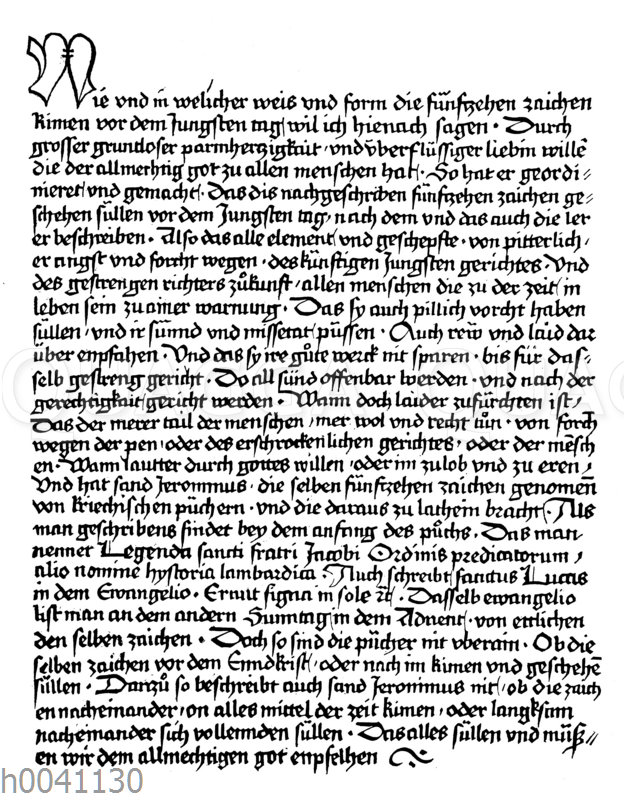 Wie vnd in welicher weis vnd form die fünfzehen zaichen
kimen vor dem Jungsten tag/ wil ich hienach sagen · Durch
grosser gruntloser parmherzigkait/ vnd vberflüssiger liebin willē
die der allmechtig got zu allen menschen hat/ · So hat er geordi-
nieret/ vnd gemacht/ · Das dis nachgeschriben fünfzehen zaichen ge-
schehen süllen vor dem Jungsten tag/ nach dem vnd das auch die ler
er beschreiben · Also das alle element/ vnd geschepfte · von pitterlich/
er angst vnd forcht wegen · des künftigen Jungsten gerichtes · Vnd
des gestrengen richters zůkunft/ allen menschen die zu der zeit/ in
leben sein zu ainer warnung · Das sy auch pillich vorcht haben
süllen/ vnd ir sünnd vnd missetat/ püssen · Auch rew vnd laid dar
über enpfahen · Vnd das sy ire gůte werck nit sparen · bis für das-
selb gestreng gericht · Do all sünd offenbar werden · vnd nach der
gerechtigkait/ gericht werden · Wann doch laider zufürchten ist/
Das der merer tail der menschen/ mer wol vnd recht tůn · von forcht
wegen der pen/ oder des erschrockenlichen gerichtes/ oder der mēsch
en · Wann lautter durch gottes willen/ oder im zu lob vnd zu eren/
Vnd hat sand Jeronimus/ die selben fünfzehen zaichen genomen
von kriechischen püchern · vnd die daraus zu lathein bracht/ · Als
man geschribens findet bey dem anfang des půchs · Das man
nennet Legenda sancti fratri Jacobi Ordinis predicatorum/
alio nomine hystoria lambardica · Auch schreibt sanctus Lucas
in dem Ewangelio · Erunt signa in sole rc̄ · Dasselb ewangelio
list man an dem andern Sunntag/ in dem Advent/ · von ettlichen
den selben zaichen · Doch so sind die pücher nit vberain · Ob die
selben zaichen vor dem Enndkrist/ oder nach im kimen vnd geschehē
süllen · Darzů so beschreibt auch sand Jeronimus nit/ ob die zaich
en nacheinander/ on alles mittel der zeit kimen/ oder langksam
nacheinander sich vollennden süllen · Das alles süllen vnd müß-
en wir dem allmechtigen got enpfelhen
h0041130